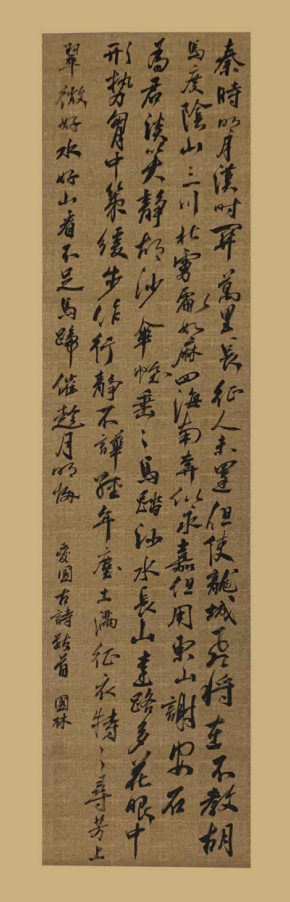 秦時明月漢時關萬里長征人未還但使龍城飛將在不教胡
馬度陰山三川北虜亂如麻四海南奔似永嘉但用東山謝安石
為君談笑靜胡沙傘幄垂〻馬踏沙水長山遠路多花眼中
形勢胸中策緩步徐行靜不譁經年塵土滿征衣特〻尋芳上
翠微好水好山看不足馬蹄催趁月明歸
愛國古詩數首 國林